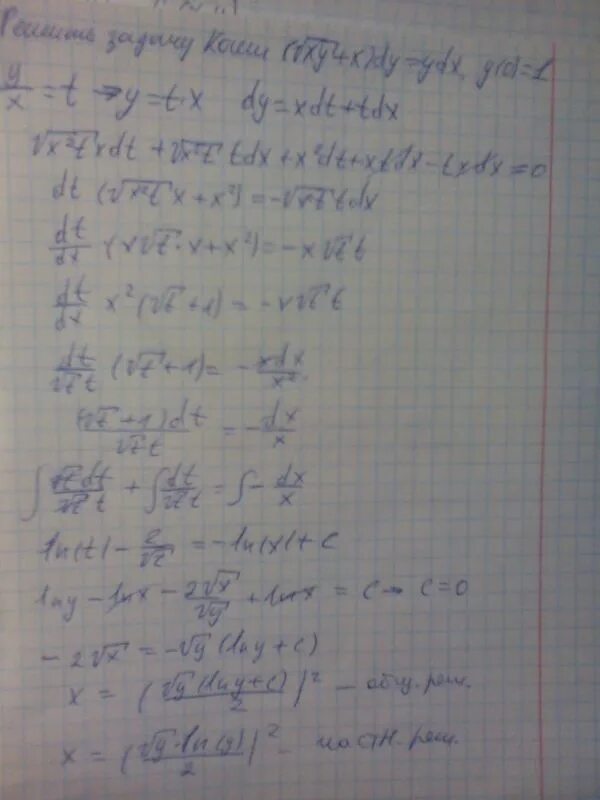 Решить задачу Коши (√xy+x)dy=ydx, y(0)=1
y/x = t → y=t·x dy=xdt+tdx
√x²t xdt + √x²t tdx + x²dt + xtdx - txdx = 0
dt (√x²t x + x²) = -√x²t tdx
dt/dx (x√t · x + x²) = -x√t t
dt/dx x²(√t + 1) = -x√t t
dt/√t t (√t + 1) = - xdx/x²
(√t + 1)dt/√t t = - dx/x
∫ √t dt/√t t + ∫ dt/√t t = ∫ - dx/x
ln(t) - 2/√t = -ln(x) + C
lny - lnx - 2√x/√y + lnx = C → C=0
- 2√x = -√y (lny + C)
x = (√y (lny + C)/2)² - общ. реш.
x = (√y · ln(y)/2)² - частн. реш.